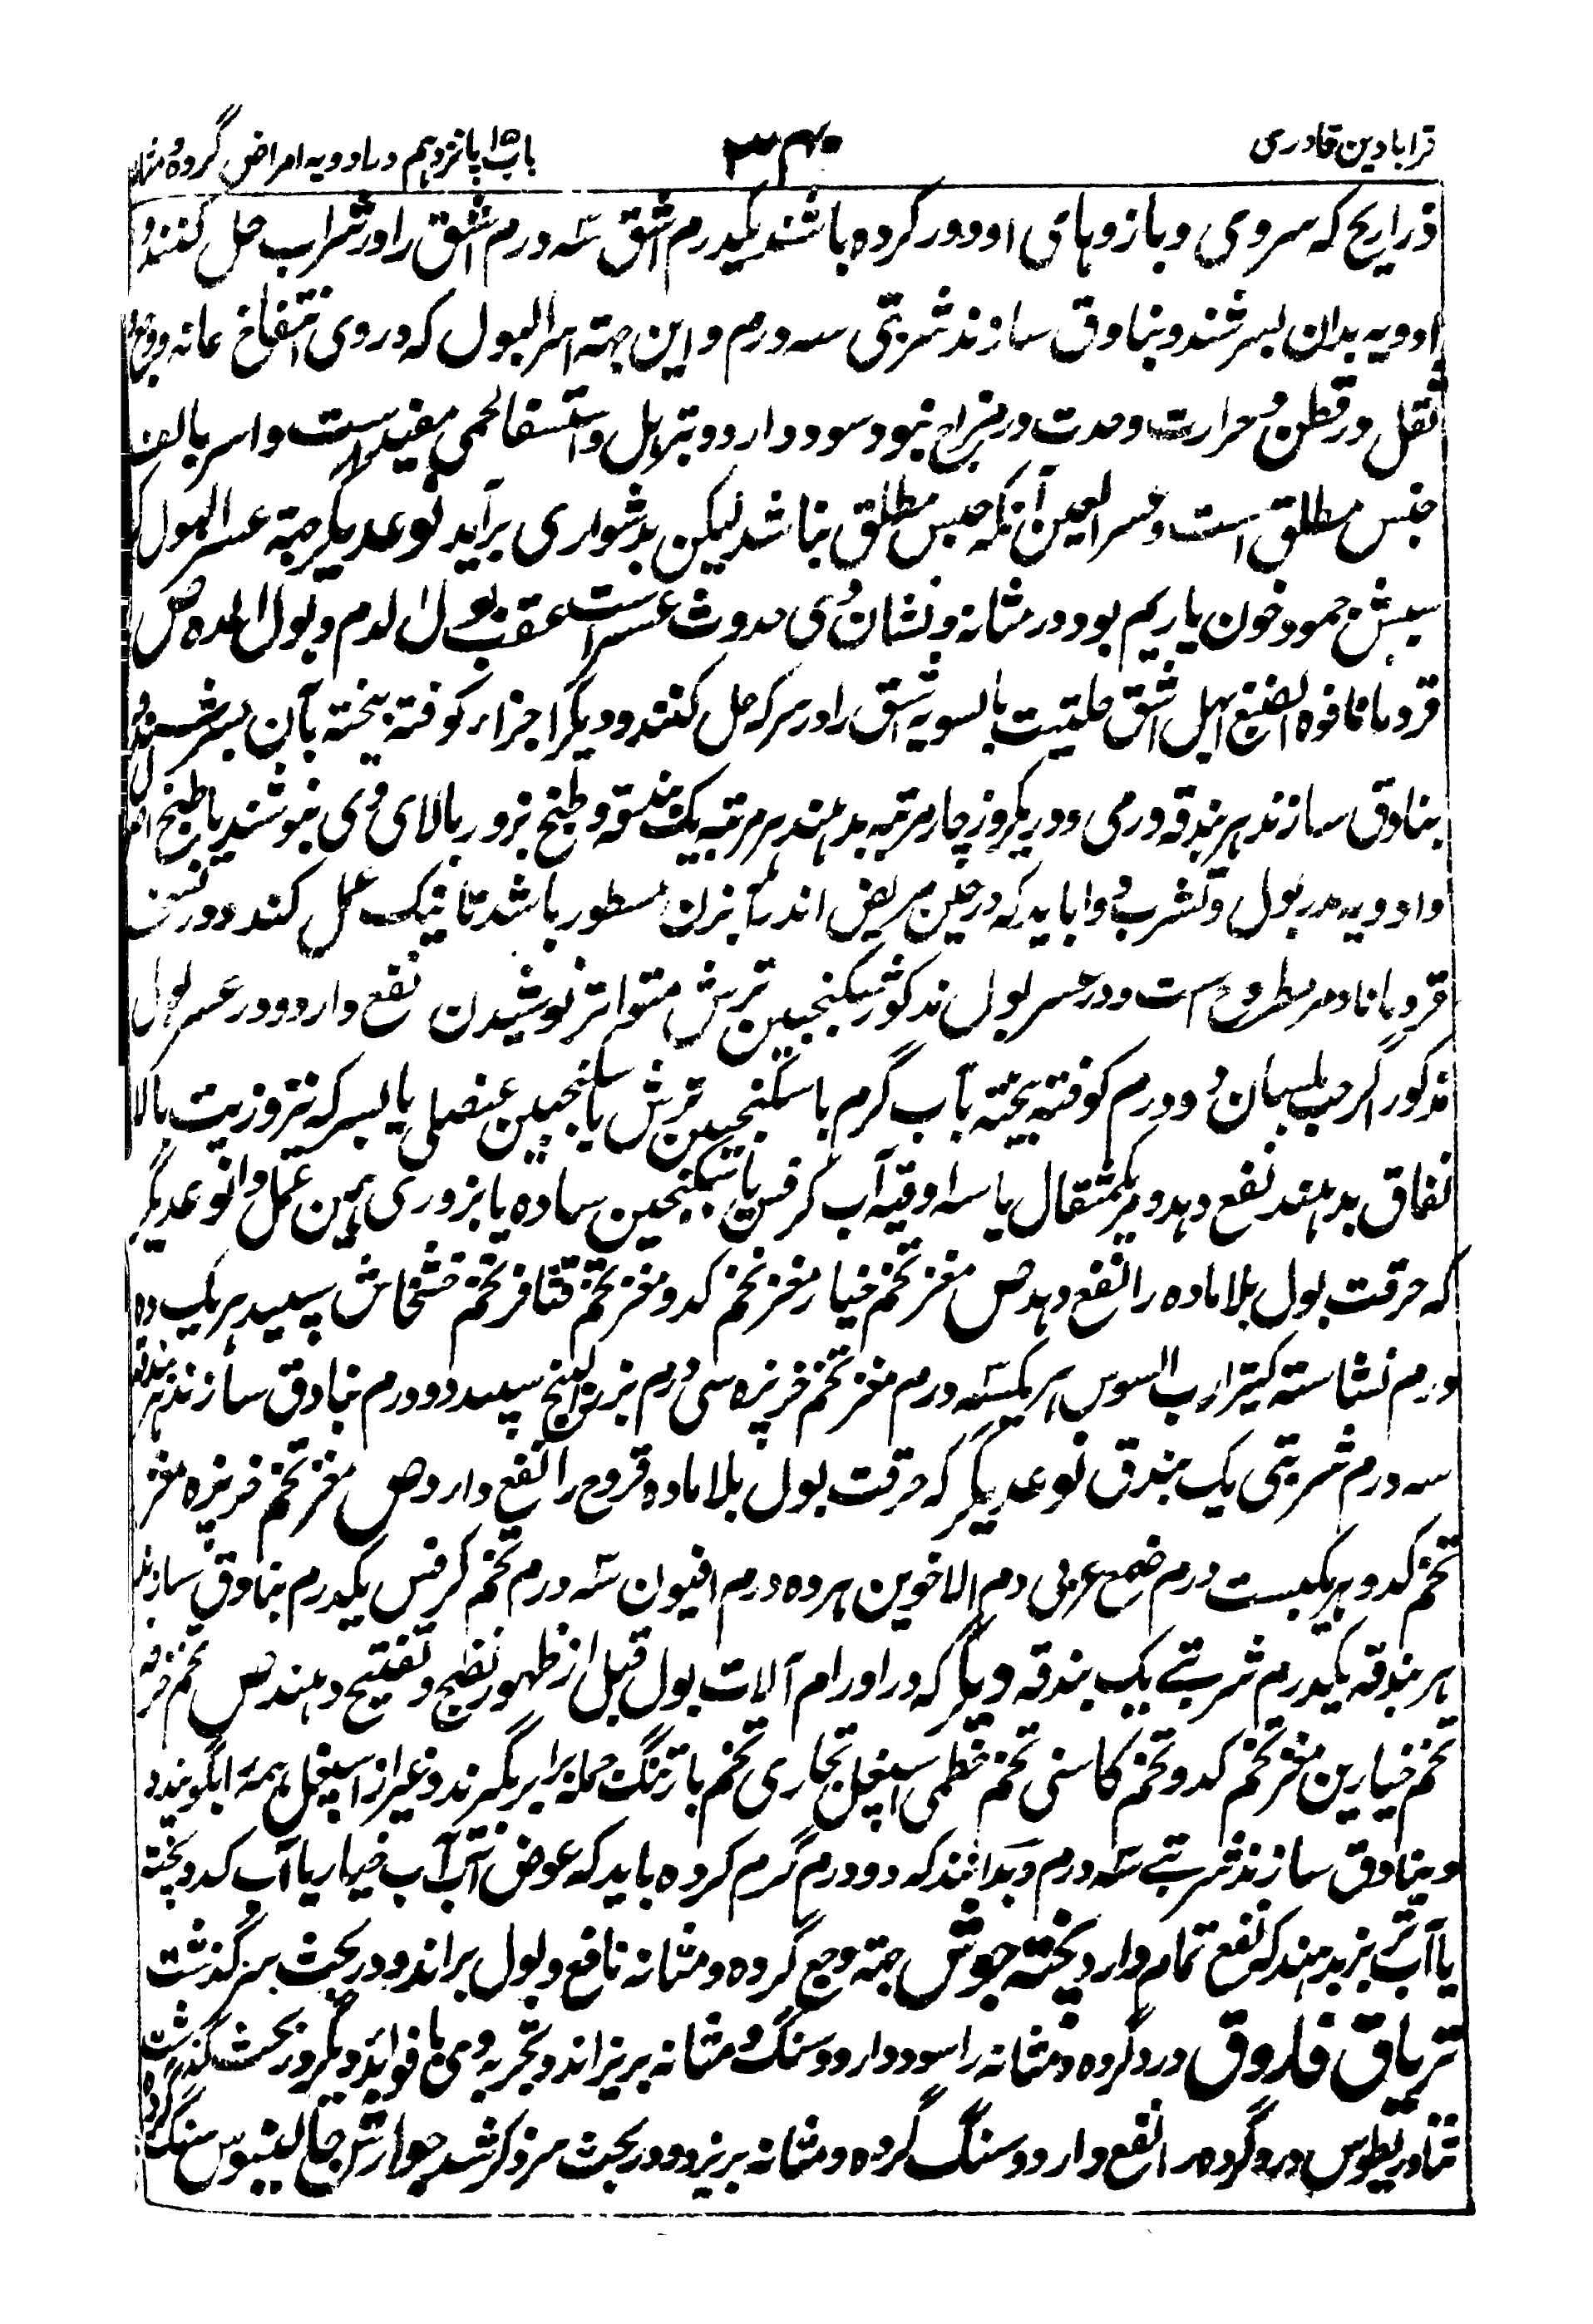 قرابادین قادری
۳۴۰
باب پانزدہم در ادویہ امراض گردہ و مثانہ
ذراریح کہ سر وی و بازوہای او دور کردہ باشند یکدرم اشق سہ درم اشق را در شراب حل کنند و
ادویہ بدان بسرشند و بنادق سازند شربتی سہ درم و این جہتہ اسر البول کہ در وی انتفاخ عانہ و وجع
ثقل در قطن و حرارت و حدت در مزاج نبود سود دارد و تربل و استسقا لحمی مفید است و اسر بالضم
حبس مطلق است و عسر العین آنکہ حبس مطلق نباشد لیکن بدشواری برآید نوعدیگر جہتہ عسر البول کہ
سببش جمود خون یا ریم بود در مثانہ و نشان وی حدوث عسر است عقب بول الدم و بول المدہ ص
قردمانا فوہ الصبغ ابہل اشق حلتیت بالسویہ اشق را در سرکہ حل کنند و دیگر اجزا کوفتہ بیختہ بآن بسرشند و
بنادق سازند ہر بندقہ درمی و در یکروز چار مرتبہ بدہند ہر مرتبہ یک بندقہ و طبخ بزور بالای وی بنوشند یا طبخ
و ادویہ مدر بول و تشرب دوا باید کہ در حین مریض اندر آبزن مسطور باشد تا نیک عمل کند و در
قردمانا دہ مطروح است و در عسر بول مذکور سکنجبین ترش متواتر نوشیدن نفع دارد و در عسر بول
مذکور اگر حب بلسان دو درم کوفتہ بیختہ بآب گرم با سکنجبین ترش یا سکنجبین عنصلی یا بسرکہ تیز و زیت بالا
نفاق بدہند نفع دہد و یکمثقال یا سہ اوقیہ آب کرفس یا سکنجبین سادہ یا بزوری ہمین عمل دارد نوعدیگر
کہ حرقت بول بلا مادہ را نفع دہد ص مغز تخم خیار مغز تخم کدو مغز تخم قثا تخم خشخاش سپید ہر یک دہ
درم نشاستہ کتیرا رب السوس ہر یک سہ درم مغز تخم خرپزہ سی درم بزر البنج سپید دو درم بنادق سازند ہر بندقہ
سہ درم شربتی یک بندق نوعدیگر کہ حرقت بول بلا مادہ قروح را نفع دارد ص مغز تخم خرپزہ مغز
تخم کدو ہر یک بیست درم صمغ عربی دم الاخوین ہر دہ درم افیون سہ درم تخم کرفس یکدرم بنادق سازند
ہر بندقہ یکدرم شربتے یک بندقہ دیگر کہ در اورام آلات بول قبل از ظہور نضج و تفتیح دہند ص تخم خرفہ
تخم خیارین مغز تخم کدو تخم کاسنی تخم خطمی اسپغل تخم بارتنگ جملہ برابر بگیرند و غیر از اسپغل ہمہ را بکوبند و
و بنادق سازند شربتے سہ درم و بدانند کہ دو درم گرم کردہ باید کہ عوض آب خیار یا آب کدو پختہ
یا آب تربز بدہند کہ نفع تمام دارد پختہ جوش جہتہ وجع گردہ و مثانہ نافع و بول براند و در بحث سر گذشت
تریاق فاروق درد گردہ و مثانہ را سود دارد و سنگ مثانہ بریزاند و تجربہ وی با فوائد دیگر در بحث گذشت
مثرودیطوس درد گردہ را نفع دارد و سنگ گردہ و مثانہ بریزد و در بحث سر ذکر شد جوارش جالینوس سنگ گردہ